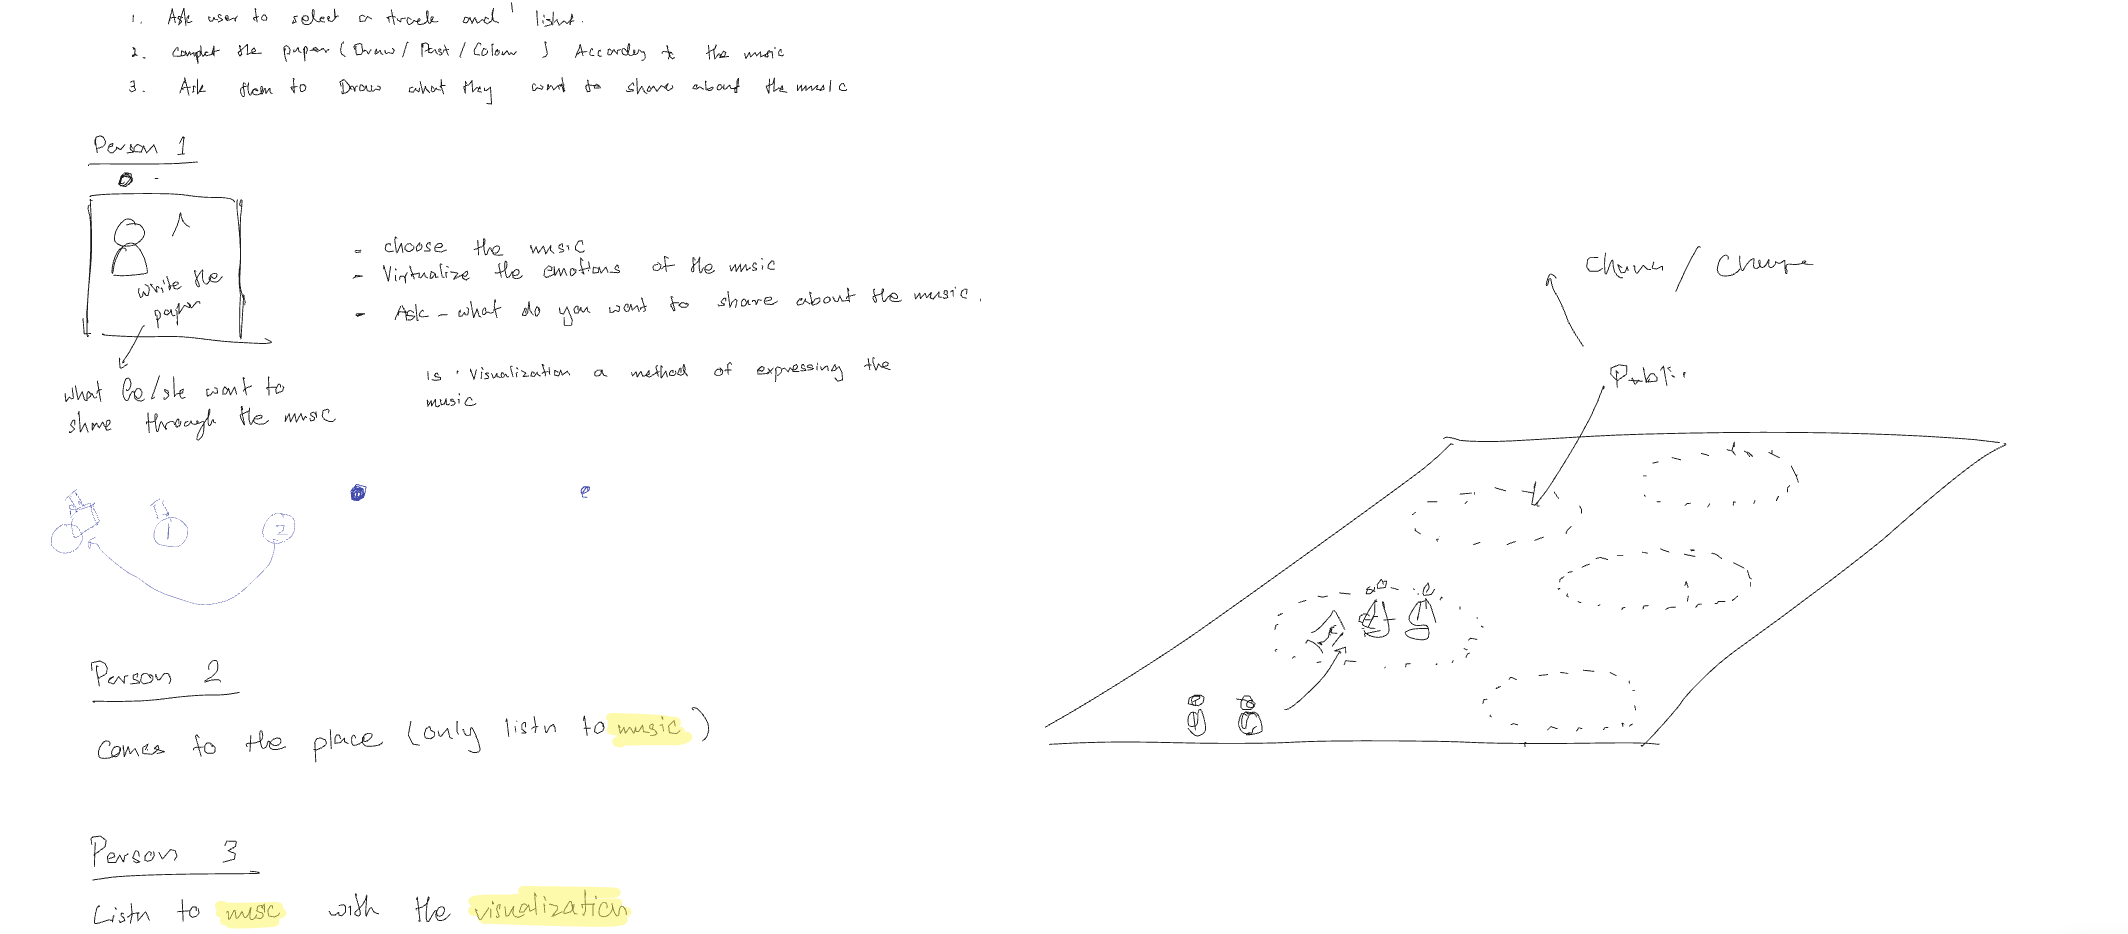 1. Ask user to select a track and listn.
2. Complet the paper (Draw / Past / Colour) According to the music
3. Ask them to Draw what they want to share about the music
Person 1
write the
paper
what he/she want to
share through the music
- choose the music
- Virtualize the emotions of the music
- Ask - what do you want to share about the music.
Is Visualization a method of expressing the
music
1
2
Person 2
comes to the place (only listn to music)
Person 3
Listn to music with the visualization
Public